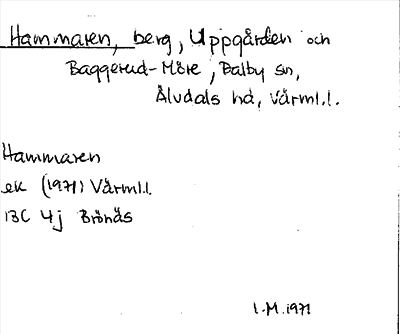 Hammaren, berg, Uppgården och
Baggerud-Möre, Dalby sn,
Älvdals hd, Värml.l.
Hammaren
ek (1971) Värml.l.
13C 4j Brönäs
I.M. 1971